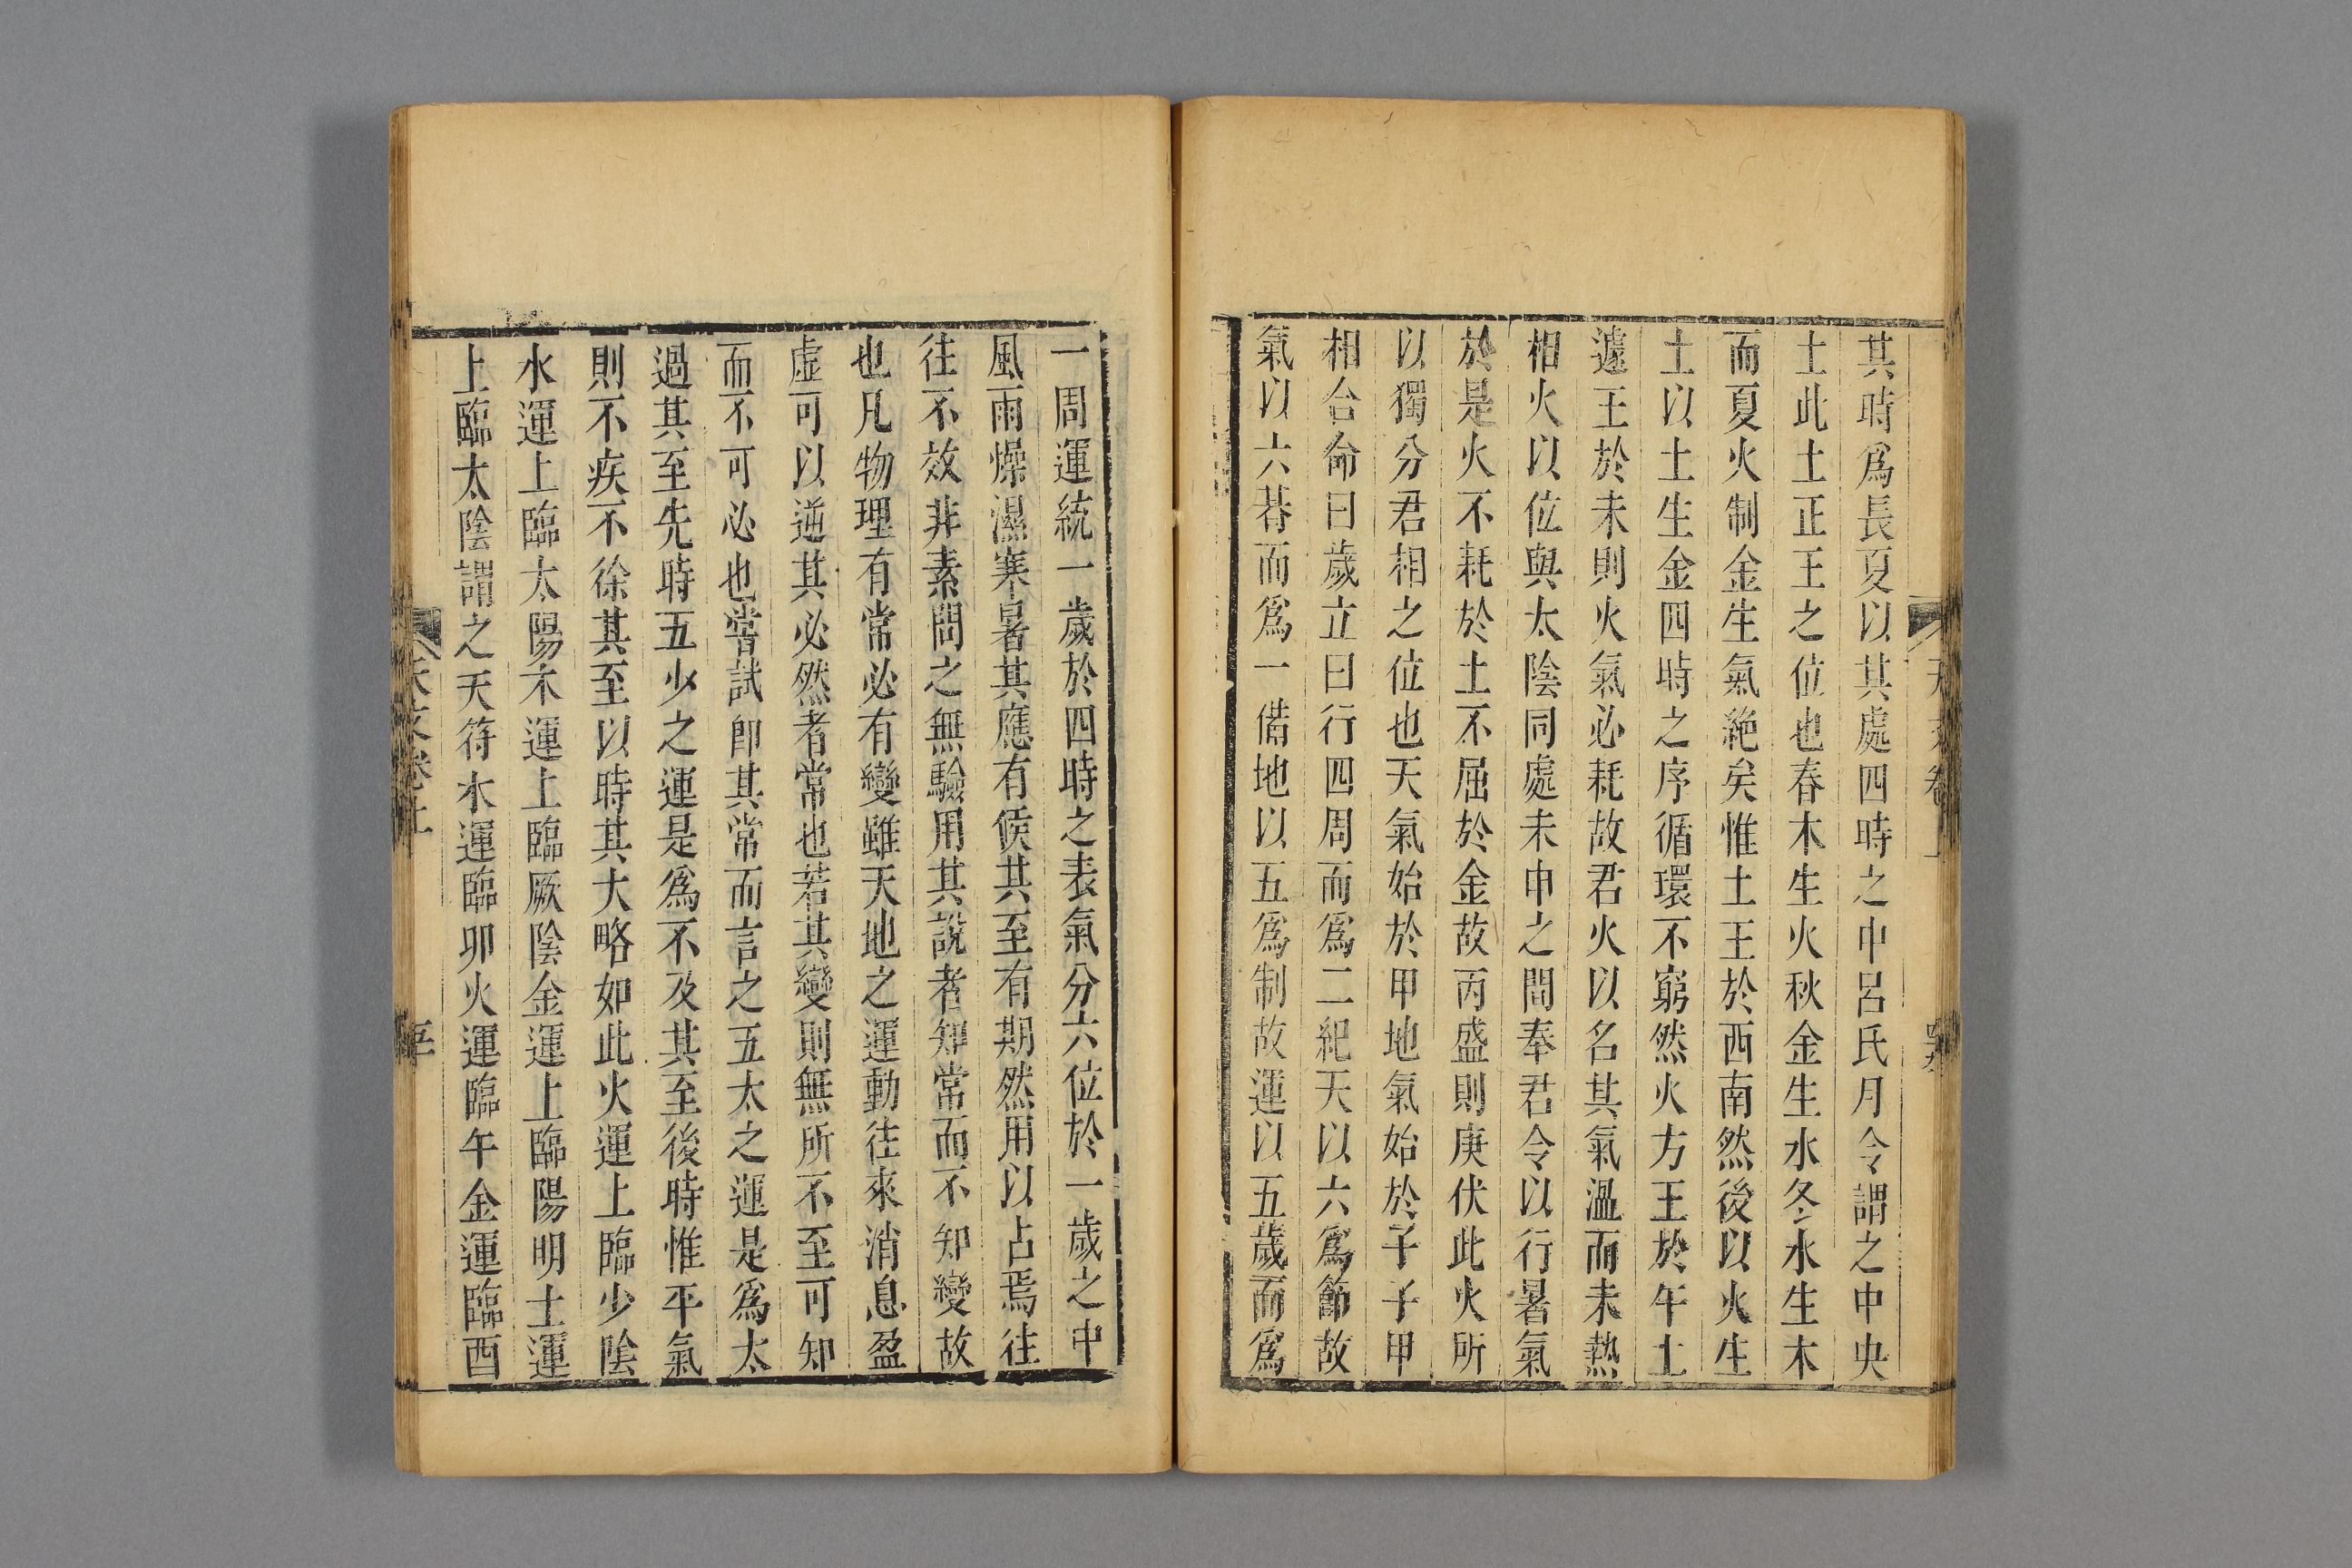 其時爲長夏以其處四時之中呂氏月令謂之中央
土此土正王之位也春木生火秋金生水冬水生木
而夏火制金生氣絶矣惟土王於西南然後以火生
土以土生金四時之序循環不窮然火方王於午土
遽王於未則火氣必耗故君火以名其氣溫而未熱
相火以位與太陰同處未申之間奉君令以行暑氣
於是火不耗於土不屈於金故丙盛則庚伏此火所
以獨分君相之位也天氣始於甲地氣始於子子甲
相合命曰歲立日行四周而爲二紀天以六爲節故
氣以六朞而爲一備地以五爲制故運以五歲而爲
一周運統一歲於四時之表氣分六位於一歲之中
風雨燥濕寒暑其應有候其至有期然用以占焉往
往不效非素問之無驗用其說者知常而不知變故
也凡物理有常必有變雖天地之運動往來消息盈
虛可以逆其必然者常也若其變則無所不至可知
而不可必也嘗試卽其常而言之五太之運是爲太
過其至先時五少之運是爲不及其至後時惟平氣
則不疾不徐其至以時其大略如此火運上臨少陰
水運上臨太陽木運上臨厥陰金運上臨陽明土運
上臨太陰謂之天符木運臨卯火運臨午金運臨酉